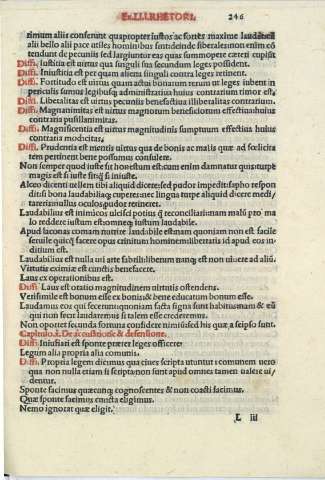 Ex.I.LI.RHETORI. 246
rimum aliis conferunt quapropter iustos ac fortes maxime laudant
alii bello alii pace utiles hominibus sunt deinde liberales non enim cō
tendunt de pecuniis sed largiuntur eas quas summopere cæteri cupiūt
Diffi. Iustitia est uirtus qua singuli sua secundum leges possident.
Diffi. Iniustitia est per quam aliena singuli contra leges retinent.
Diffi. Fortitudo est uirtus quam actus bonarum rerum ut leges iubent in
periculis sumus legibusq; administratius huius contrarium timor est.
Diffi. Liberalitas est uirtus pecuniis benefactiua illiberalitas contrarium.
Diffi. Magnanimitas est uirtus magnorum beneficiorum effectiua huius
contraria pusillanimitas.
Diffi. Magnificentia est uirtus magnitudinis sumptuum effectiua huius
contraria modicitas.
Diffi. Prudentia est mentis uirtus qua de bonis ac malis quæ ad fœlicita
tem pertinent bene possumus consulere.
Non semper quod iuste fit honestum est: cum enim damnatur quis turpe
magis est si iuste q̄ si iniuste.
Alceo dicenti uellem tibi aliquid dicere sed pudor impedit: sapho respon
dit si bona laudabiliaq; cuperes nec lingua turpe aliquid dicere medi/
tareris nullus oculos pudor retineret.
Laudabilius est inimicos ulcisci potius q̄ reconciliari: nam malū pro ma
lo reddere iustum est omneq; iustum laudabile.
Apud laconas comam nutrire laudabile est nam quoniam non est facile
seruile quicq̄ facere opus crinitum hominem libertatis id apud eos in/
ditium est.
Laudabilius est nulla uti arte fabrili liberum nanq; est non uiuere ad aliū.
Virtutis eximiæ est cunctis benefacere.
Laus ex operationibus est.
Diffi. Laus est oratio magnitudinem uirtutis ostendens.
Verisimile est bonum esse ex bonis & bene educatum bonum esse.
Laudamus eos qui fecerunt quoniam facta signa sunt habituū nam & eū
qui non fecit laudaremus si talem esse crederemus.
Non oportet secunda fortuna confidere nimis sed his quæ a seipso sunt.
Capitulo.x. De accusatione & defensione.
Diffi. Iniusfari est sponte præter leges officere.
Legum alia propria alia communis.
Diffi. Propria legem dicimus qua ciues scripta utuntur: communem uero
qua non nulla etiam si scripta non sunt apud omnes tamen ualere ui/
dentur.
Sponte facimus quæcunq; cognoscentes & non coacti facimus.
Quæ sponte facimus cuncta eligimus.
Nemo ignorat quæ eligit.
L iii